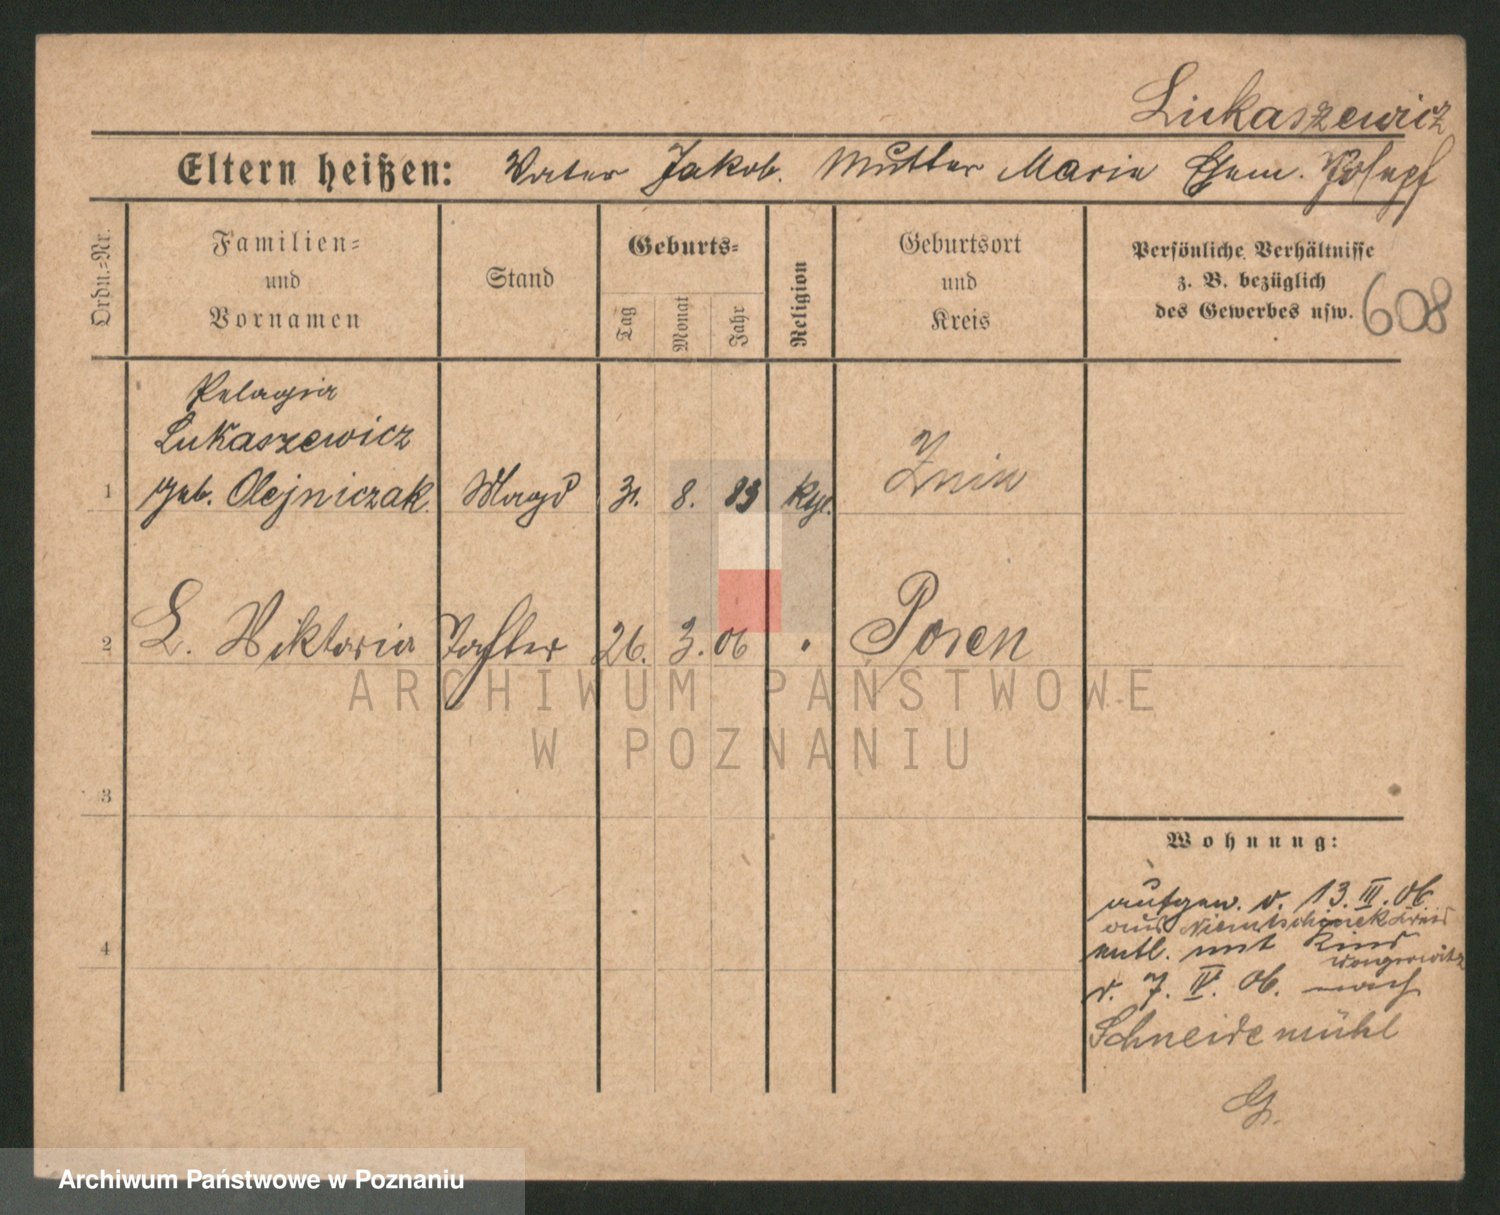 Lukaszewicz
Eltern heißen: Vater Jakob. Mutter Marie Ehem. Joseph
Ordn.=Nr.
Familien=
und
Vornamen
Stand
Geburts=
Tag
Monat
Jahr
Religion
Geburtsort
und
Kreis
Persönliche Verhältnisse
z. B. bezüglich
des Gewerbes usw.
608
Pelagia
Lukaszewicz
1 geb. Olejniczak Magd 31. 8. 83 Znin
2 L. Viktoria Tochter 26. 3. 06 " Posen
3
4
Wohnung:
aufgen. v. 13. III. 06
aus Kreis
entl. mit Kind
Wongrowitz
v. 7. IV. 06. nach
Schneidemühl
G.
ARCHIWUM PAŃSTWOWE
W POZNANIU
Archiwum Państwowe w Poznaniu